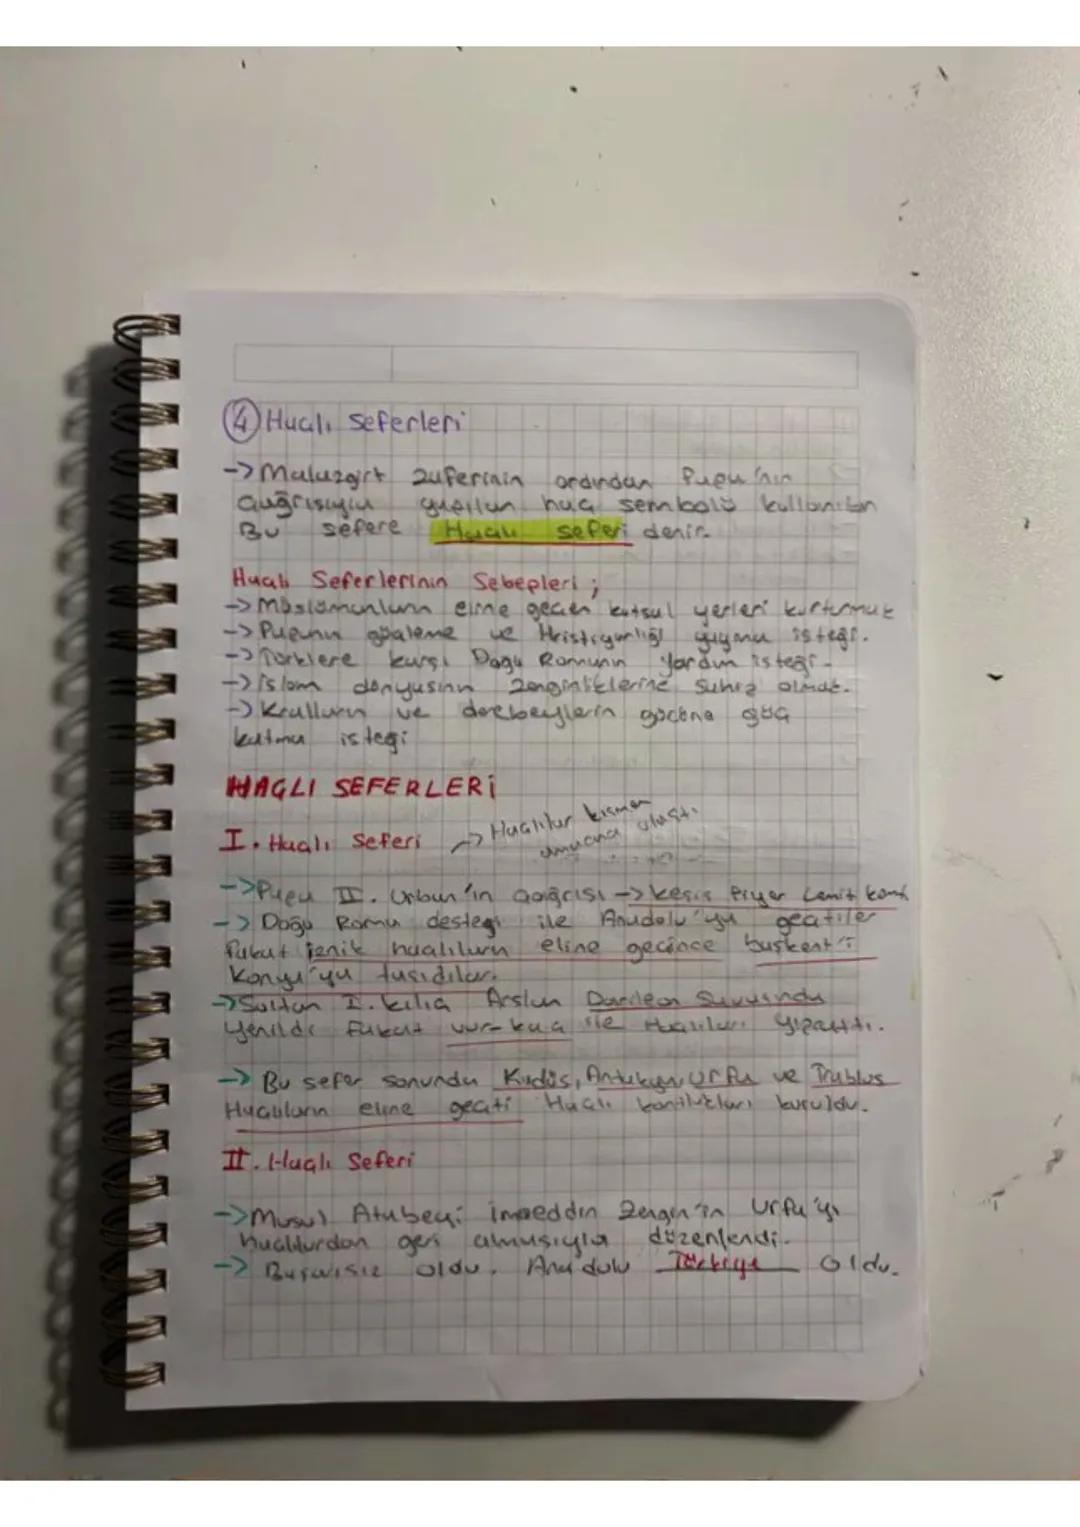 ④ Haçlı Seferleri
-> Malazgirt zaferinin ardından Papa'nın
çağrısıyla yapılan haç sembolü kullanılan
Bu sefere Haçlı seferi denir.
Haçlı Seferlerinin Sebepleri ;
-> Müslümanların eline geçen kutsal yerleri kurtarmak
-> Papanın gözaleme ve Hristiyanlığı yayma isteği.
-> Türklere karşı Dogu Romanın Yardım isteği.
-> İslam dünyasının zenginliklerine sahip olmak.
-> Kralların ve derebeylerin gücüne güç
katma isteği
HAÇLI SEFERLERİ
I. Haçlı Seferi -> Haçlılar kısmen
amacına ulaştı.
-> Papa II. Urban'ın çağrısı -> keşiş Piyer Lermit
-> Doğu Roma desteği ile Anadolu'ya geçtiler
Fakat İznik haçlıların eline geçince başkent'i
Konya'ya taşıdılar.
-> Sultan I. kılıç Arslan Savaşında
Yenildi fakat vur-kaç ile Haçlıları yıprattı.
-> Bu sefer sonunda Kudüs, Antakya, Urfa ve Trablus
Haçlıların eline geçti Haçlı kontlukları kuruldu.
II. Haçlı Seferi
-> Musul Atabeyi İmaeddin Zengin'in Urfa'yı
haçlılardan geri almasıyla düzenlendi.
-> Başarısız oldu. Anadolu Türkiye oldu.